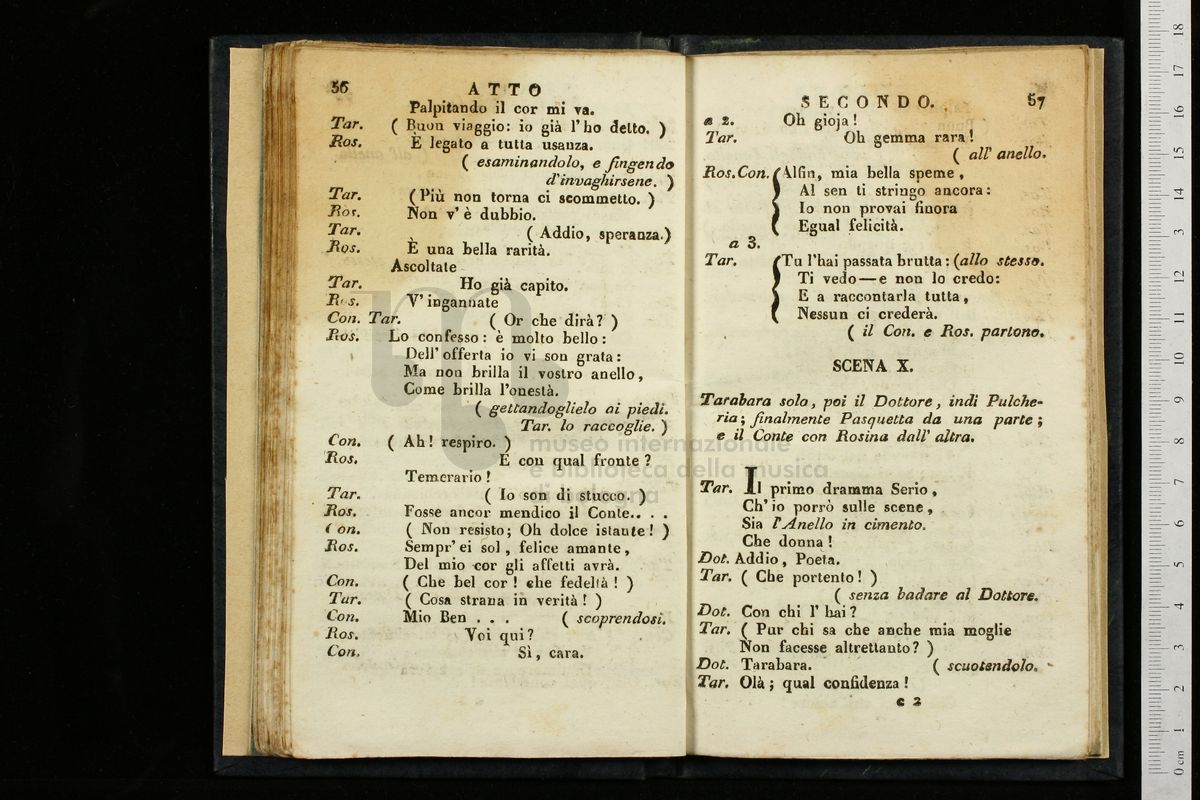 56 ATTO
Palpitando il cor mi va.
Tar. ( Buon viaggio: io già l'ho detto. )
Ros. È legato a tutta usanza.
( esaminandolo, e fingendo
d'invaghirsene. )
Tar. (Più non torna ci scommetto. )
Ros. Non v'è dubbio.
Tar. ( Addio, speranza.)
Ros. È una bella rarità.
Ascoltate
Tar. Ho già capito.
Ros. V'ingannate
Con. Tar. ( Or che dirà? )
Ros. Lo confesso: è molto bello:
Dell'offerta io vi son grata:
Ma non brilla il vostro anello,
Come brilla l'onestà.
( gettandoglielo ai piedi.
Tar. lo raccoglie. )
Con. ( Ah! respiro. )
Ros. E con qual fronte?
Temerario!
Tar. ( Io son di stucco. )
Ros. Fosse ancor mendico il Conte. . . .
Con. ( Non resisto; Oh dolce istante! )
Ros. Sempr'ei sol, felice amante,
Del mio cor gli affetti avrà.
Con. ( Che bel cor! che fedeltà! )
Tar. ( Cosa strana in verità! )
Con. Mio Ben . . . ( scoprendosi.
Ros. Voi qui?
Con. Sì, cara.
SECONDO. 57
a 2. Oh gioja!
Tar. Oh gemma rara!
( all' anello.
Ros.Con. Alfin, mia bella speme,
Al sen ti stringo ancora:
Io non provai finora
Egual felicità.
a 3.
Tar. Tu l'hai passata brutta: (allo stesso.
Ti vedo—e non lo credo:
E a raccontarla tutta,
Nessun ci crederà.
( il Con. e Ros. partono.
SCENA X.
Tarabara solo, poi il Dottore, indi Pulche-
ria; finalmente Pasquetta da una parte;
e il Conte con Rosina dall' altra.
Tar. Il primo dramma Serio,
Ch'io porrò sulle scene,
Sia l'Anello in cimento.
Che donna!
Dot. Addio, Poeta.
Tar. ( Che portento! )
( senza badare al Dottore.
Dot. Con chi l'hai?
Tar. ( Pur chi sa che anche mia moglie
Non facesse altrettanto? )
Dot. Tarabara. ( scuotendolo.
Tar. Olà; qual confidenza!
c 2
museo internazionale
e biblioteca della musica
di bologna
0 cm 1 2 3 4 5 6 7 8 9 10 11 12 13 14 15 16 17 18